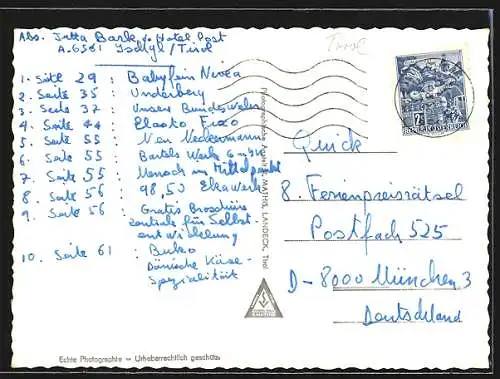 Abs. Jutta Bark, Hotel Post
A-6561 Ischgl/Tirol
Tirol
1. Seite 29 : Babyfein Nivea
2. Seite 35 : Underberg
3. Seite 37 : Unsere Bundeswehr
4. Seite 44 : Elasto Fixo
5. Seite 55 : Neckermann
6. Seite 55 : Bartels Werk GmbH
7. Seite 55 : Mensch im Mittelpunkt
8. Seite 56 : 98,50 Eka Werk
9. Seite 56 : Gratis Broschüre
Zentrale für Selbst-
entwicklung
10. Seite 61 : Buko
Dänische Käse-
Spezialität
2S
REPUBLIK ÖSTERREICH
Quick
8. Ferienpreisrätsel
Postfach 525
D-8000 München 3
Deutschland
MATHIS, LANDECK, Tirol
Echte Photographie — Urheberrechtlich geschützt